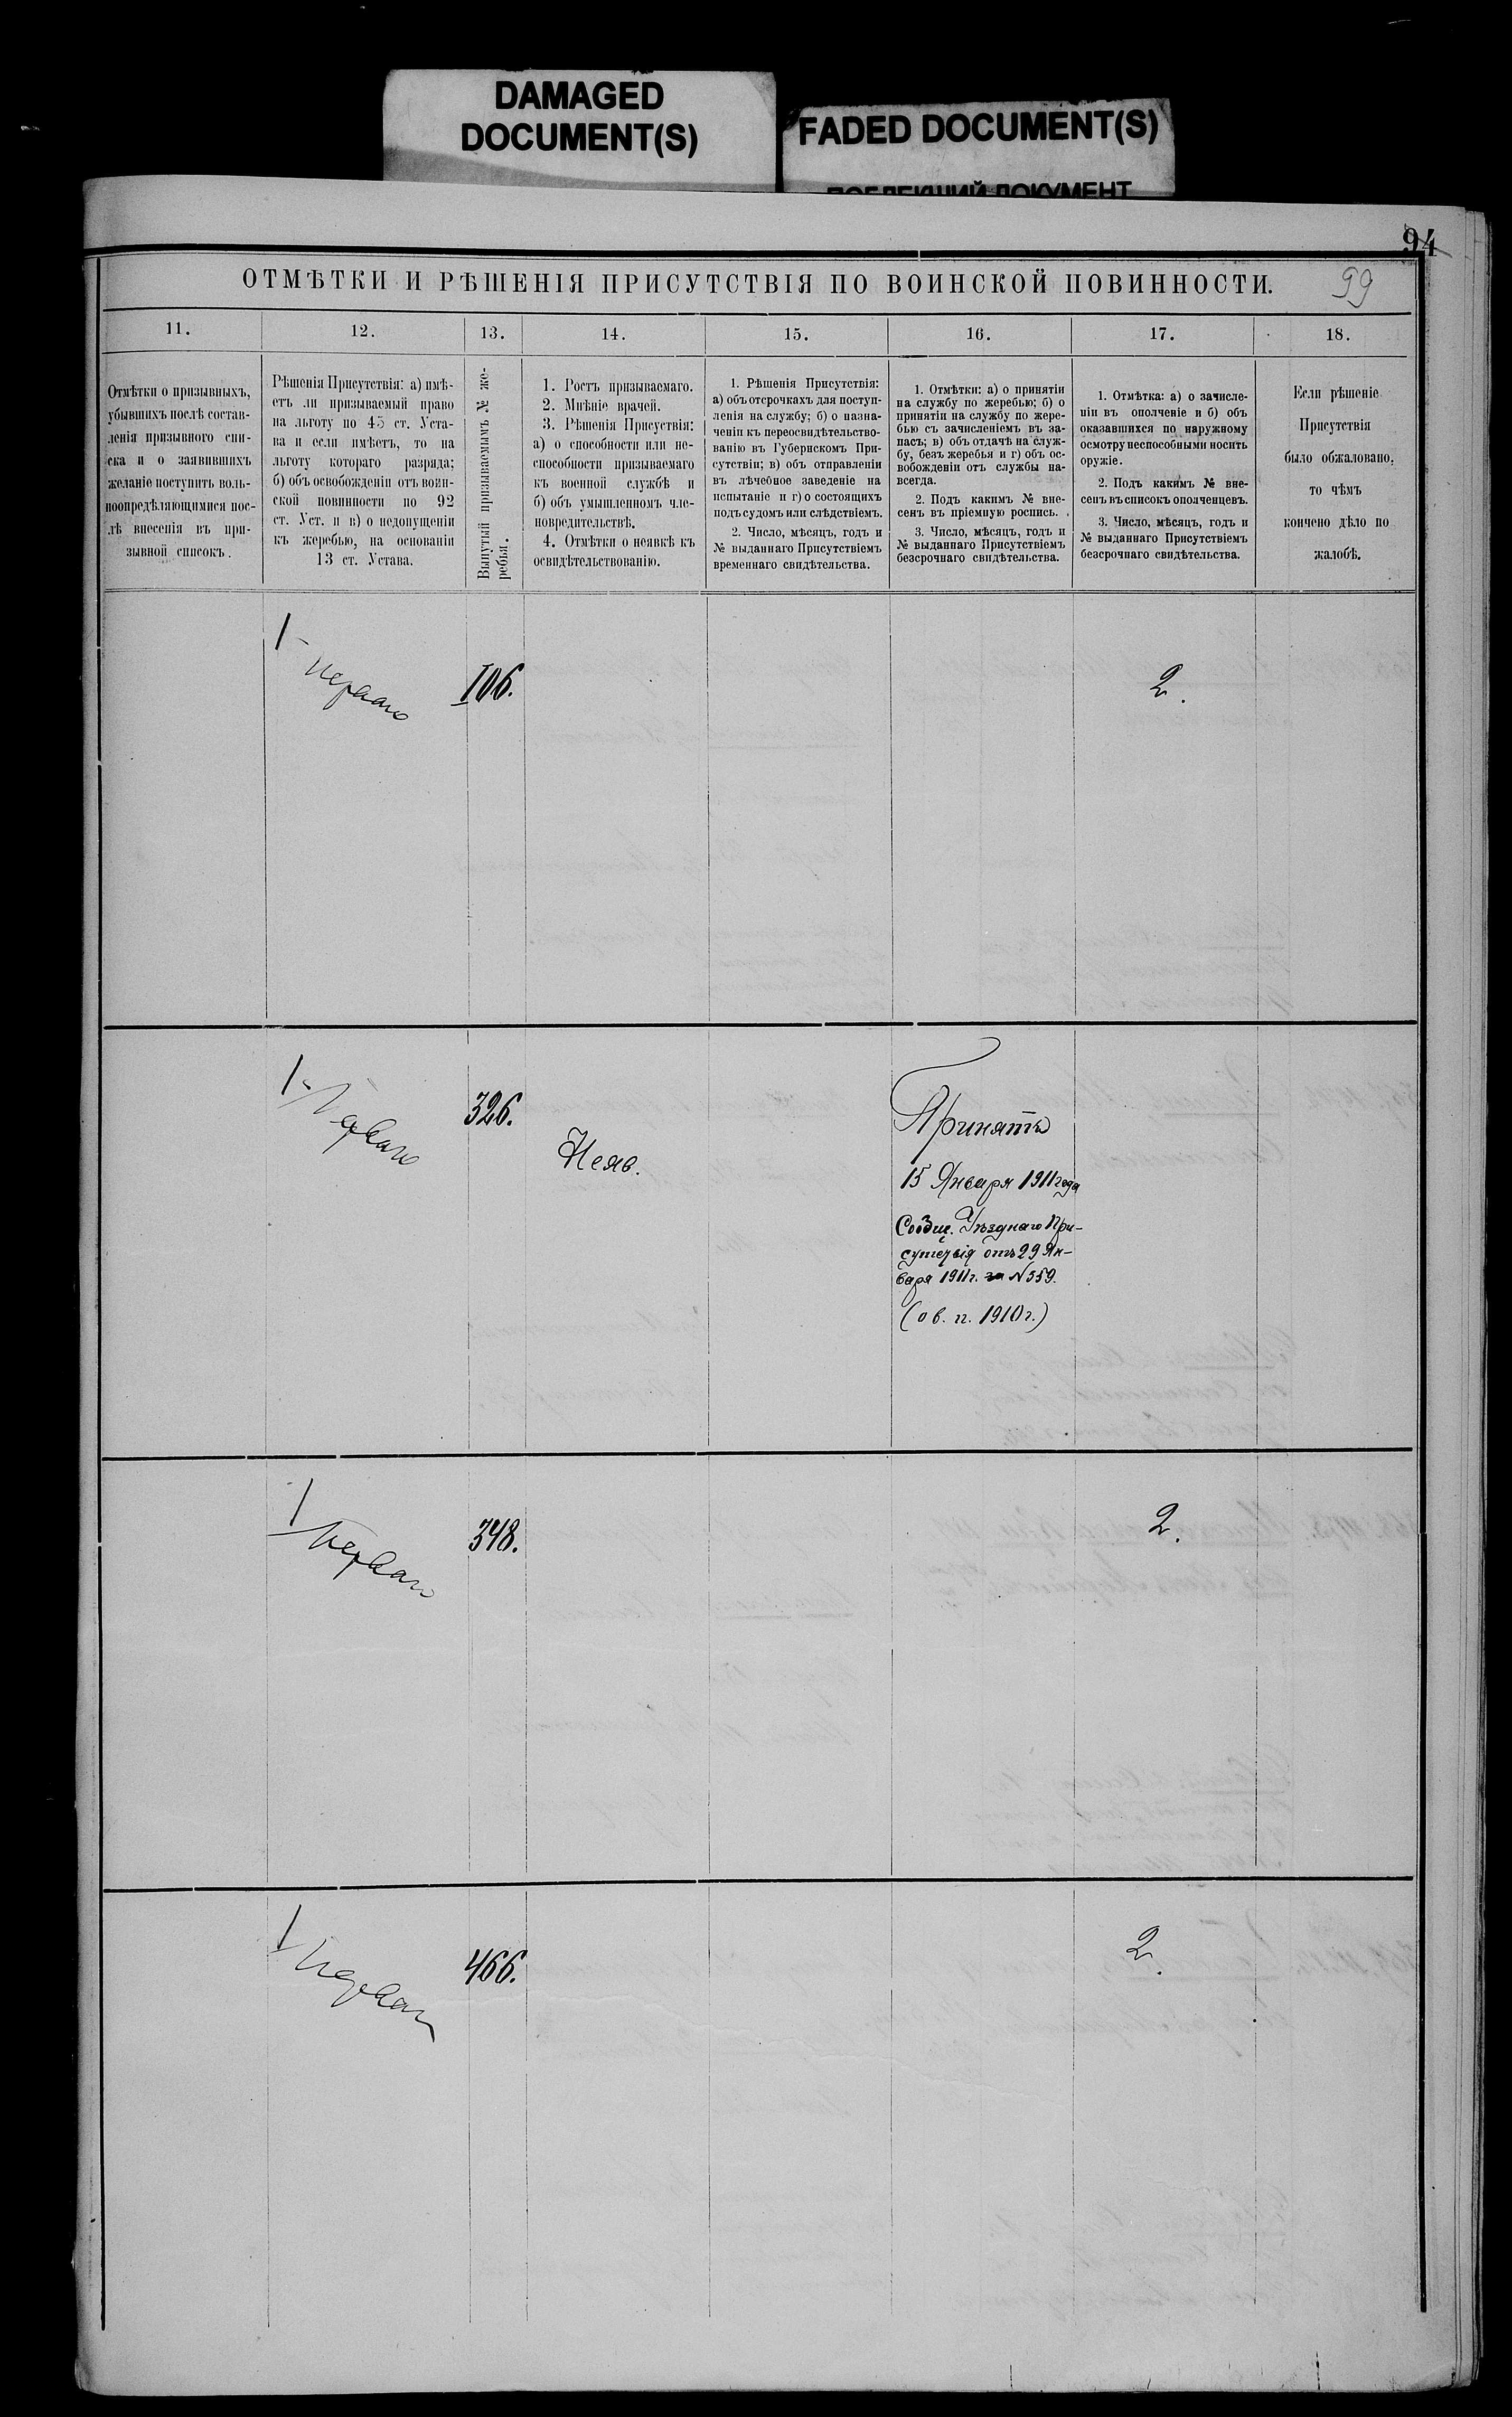 DAMAGED
DOCUMENT(S)
FADED DOCUMENT(S)
ПОБЛЕКШИЙ ДОКУМЕНТ
94
99
ОТМѢТКИ И РѢШЕНІЯ ПРИСУТСТВІЯ ПО ВОИНСКОЙ ПОВИННОСТИ.
11.
12.
13.
14.
15.
16.
17.
18.
Отмѣтки о призывныхъ,
убывшихъ послѣ состав-
ленія призывного спи-
ска и о заявившихъ
желаніе поступить воль-
ноопредѣляющимися пос-
лѣ внесенія въ при-
зывной списокъ.
Рѣшенія Присутствія: а) имѣ-
етъ ли призываемый право
на льготу по 45 ст. Уста-
ва и если имѣетъ, то на
льготу котораго разряда;
б) объ освобожденіи отъ воин-
ской повинности по 92
ст. Уст. и в) о недопущеніи
къ жеребью, на основаніи
13 ст. Устава.
Вынутый призываемымъ № же-
ребья.
1. Ростъ призываемаго.
2. Мнѣніе врачей.
3. Рѣшенія Присутствія:
а) о способности или не-
способности призываемаго
къ военной службѣ и
б) объ умышленномъ чле-
новредительствѣ.
4. Отмѣтки о неявкѣ къ
освидѣтельствованію.
1. Рѣшенія Присутствія:
а) объ отсрочкахъ для поступ-
ленія на службу; б) о назна-
ченіи къ переосвидѣтельство-
ванію въ Губернскомъ При-
сутствіи; в) объ отправленіи
въ лѣчебное заведеніе на
испытаніе и г) о состоящихъ
подъ судомъ или слѣдствіемъ.
2. Число, мѣсяцъ, годъ и
№ выданнаго Присутствіемъ
временнаго свидѣтельства.
1. Отмѣтки: а) о принятіи
на службу по жеребью; б) о
принятіи на службу по жере-
бью съ зачисленіемъ въ за-
пасъ; в) объ отдачѣ на служ-
бу, безъ жеребья и г) объ ос-
вобожденіи отъ службы на-
всегда.
2. Подъ какимъ № вне-
сенъ въ пріемную роспись.
3. Число, мѣсяцъ, годъ и
№ выданнаго Присутствіемъ
безсрочнаго свидѣтельства.
1. Отмѣтка: а) о зачисле-
ніи въ ополченіе и б) объ
оказавшихся по наружному
осмотру неспособными носить
оружіе.
2. Подъ какимъ № вне-
сенъ въ списокъ ополченцевъ.
3. Число, мѣсяцъ, годъ и
№ выданнаго Присутствіемъ
безсрочнаго свидѣтельства.
Если рѣшеніе
Присутствія
было обжаловано,
то чѣмъ
кончено дѣло по
жалобѣ.
1
перваго
106.
2.
1
Перваго
326.
Неяв.
Принятъ
15 Января 1911 года
Сообщ. Уѣзднаго При-
сутствія отъ 29 Ян-
варя 1911 г. за N 559.
(о в. п. 1910 г.)
1
перваго
348.
2.
1
перваго
466.
2.